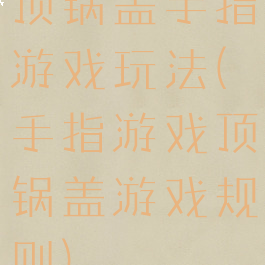 顶锅盖手指
游戏玩法(
手指游戏顶
锅盖游戏规
则)